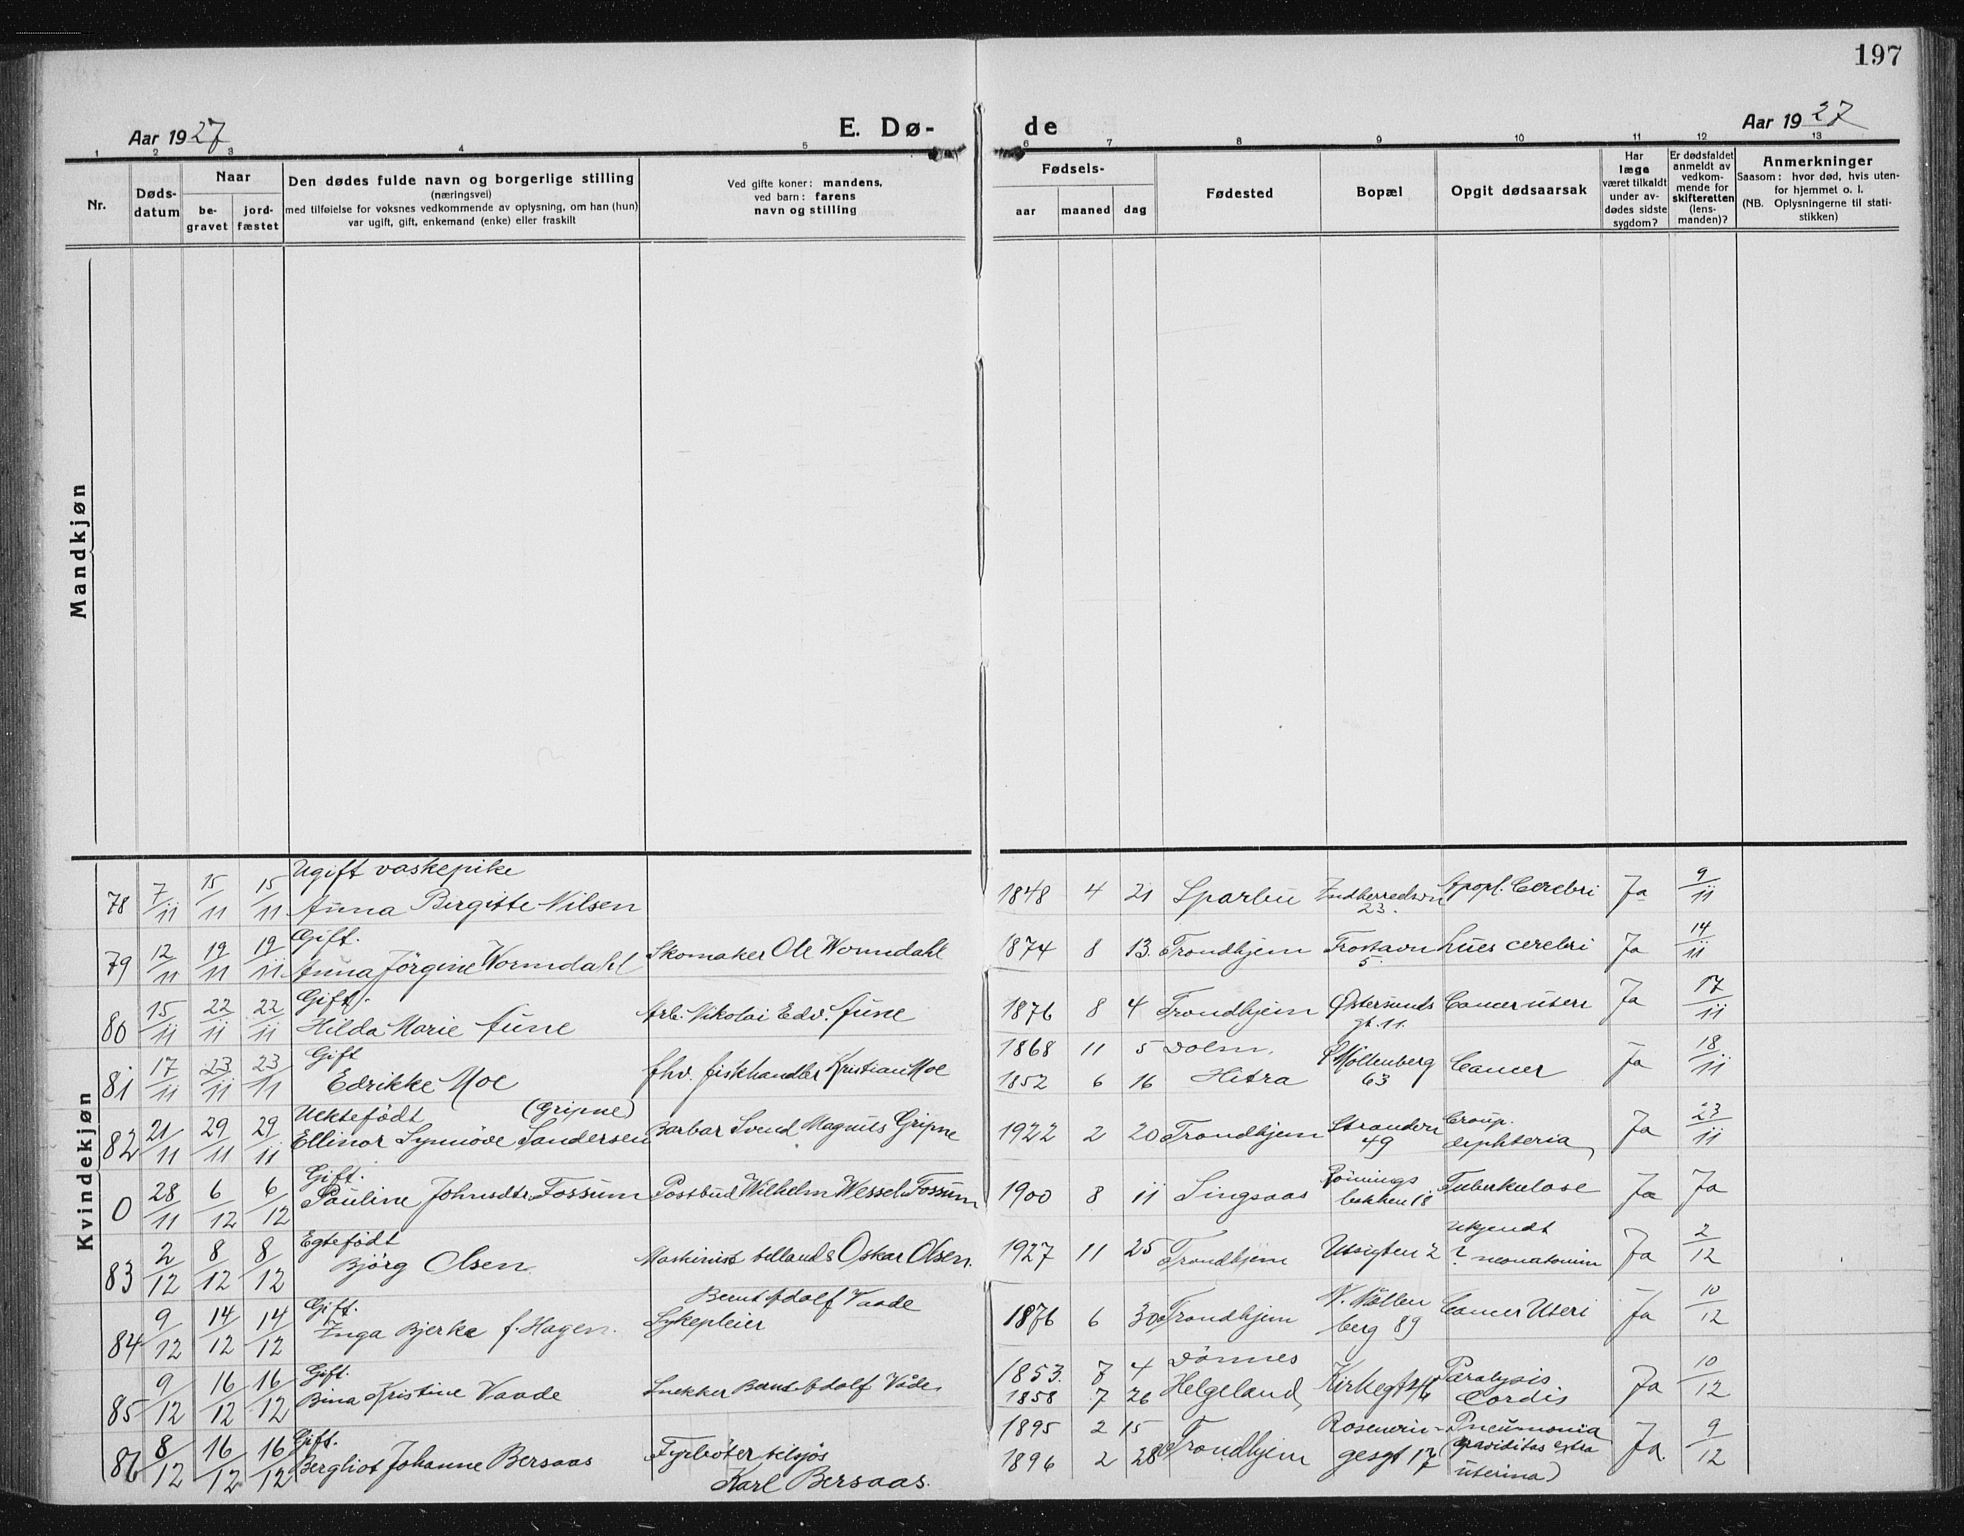 197
Aar 1927
E. Dø-
de
Aar 1927
1 2 3 4 5 6 7 8 9 10 11 12 13
Nr.
Døds-
datum
Naar
be-
gravet
jord-
fæstet
Den dødes fulde navn og borgerlige stilling
(næringsvei)
med tilføielse for voksnes vedkommende av oplysning, om han (hun)
var ugift, gift, enkemand (enke) eller fraskilt
Ved gifte koner: mandens,
ved barn: farens
navn og stilling
Fødsels-
aar maaned dag
Fødested
Bopæl
Opgit dødsaarsak
Har
læge
været tilkaldt
under av-
dødes sidste
sygdom?
Er dødsfaldet
anmeldt av
vedkom-
mende for
skifteretten
(lens-
manden)?
Anmerkninger
Saasom: hvor død, hvis uten-
for hjemmet o. l.
(NB. Oplysningerne til stati-
stikken)
Mandkjøn
Kvindekjøn
Ugift vaskepike
78 7/11 15/11 15/11 Anna Bergitte Nilsen 1848 4 21 Sparbu Indherredsvn 23. Apopl. Cerebri Ja 9/11
Gift.
79 12/11 19/11 19/11 Anna Jörgine Wormdahl Skomaker Ole Wormdahl 1874 8 13. Trondhjem 5. Lues cerebri Ja 14/11
Gift.
80 15/11 22/11 22/11 Hilda Marie Aune Arb. Nikolai Edv. Aune 1876 8 4 Trondhjem Østersunds gt. 11. Cancer uteri Ja 17/11
Gift 1868 11 5 Dolm.
81 17/11 23/11 23/11 Edrikke Moe fhv. fiskhandler Kristian Moe 1852 6 16 Hitra Ø Möllenberg 63 Cancer Ja 18/11
Uektefödt (Gripne)
82 21/11 29/11 29/11 Ellinor Synnöve Sandersen Barbar Svend Magnus Gripne 1922 2 20 Trondhjem Strandvn 49 Croup. diphteria Ja 23/11
Gift.
0 28/11 6/12 6/12 Pauline Johnsdtr. Fossum Postbud Wilhelm Wessel Fossum 1900 8 11 Singsaas Rönnings bakken 18 Tuberkulose Ja Ja
Egtefödt
83 2/12 8/12 8/12 Björg Olsen Maskinist tillands Oskar Olsen. 1927 11 25 Trondhjem Utsigten 2 Ukjendt ? neonatorum Ja 2/12
Gift. Bernt Adolf Vaade
84 9/12 14/12 14/12 Inga Bjerke f. Hagen. Sykepleier 1876 6 30 Trondhjem N. Möllen berg 89 Cancer Uteri Ja 10/12
Gift. 1853. 7 4 Dönnes
85 9/12 16/12 16/12 Bina Kristine Vaade Snekker Bernt Adolf Våde 1858 7 26 Helgeland, Kirkegt Paralysis Cordis Ja 10/12
Gift. 1895 2 15
86 8/12 16/12 16/12 Bergliot Johanne Bersaas Fyrböter tilsjös Karl Bersaas. 1896 2 28 Trondhjem gesgt 17 Pneumonia (graviditas extra uterina) Ja. 9/12